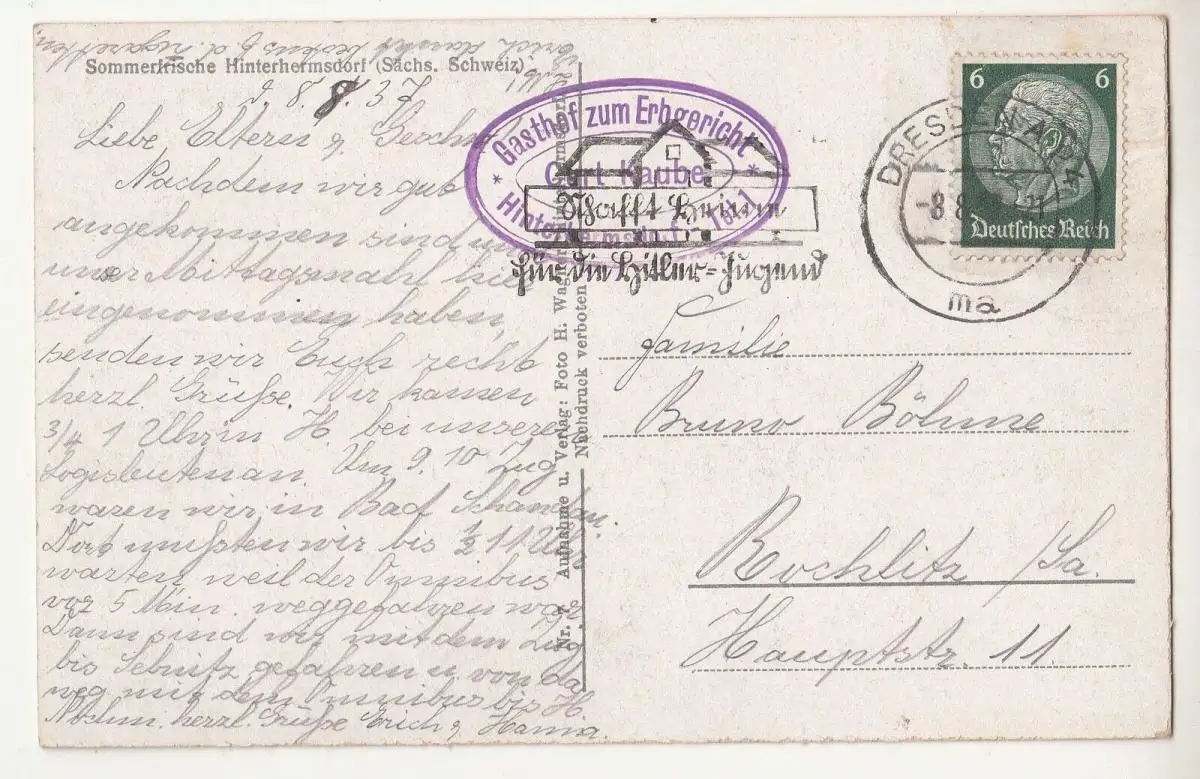 Sommerfrische Hinterhermsdorf (Sächs. Schweiz)
d. 8.8.37
Liebe Eltern u. Geschw.
Nachdem wir gut
angekommen sind und
unser Mittagsmahl hier
eingenommen haben,
senden wir Euch recht
herzl. Grüße. Wir kamen
3/4 1 Uhr in H. bei unseren
Logisleuten an. Um 9.10 Zug
waren wir in Bad Schandau.
Dort mußten wir bis 1/2 11 Uhr
warten, weil der Omnibus
vor 5 Min. weggefahren war.
Dann sind wir mit dem Zug
bis Sebnitz gefahren u. von da
weg mit dem Omnibus bis H.
Nochm. herzl. Grüße Erich u. Hanna.
Erich dankt bestens f. d. Zigaretten.
Nr. 7 Aufnahme u. Verlag: Foto H. Wagner, Hinterhermsdorf
Nachdruck verboten
Gasthof zum Erbgericht
Curt Kaube
Hinterhermsdorf
Schafft Heime
für die Hitler-Jugend
DRESDEN
-8.8
ma
6 6
Deutsches Reich
Familie
Bruno Böhme
Rochlitz /Sa.
Hauptstr. 11.